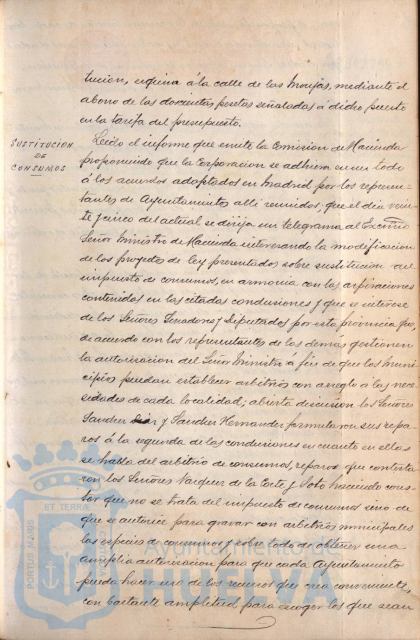 tucion, esquina á la calle de las Monjas, mediante el
abono de las doscientas pesetas señaladas á dicho puesto
en la tarifa del presupuesto.
SUSTITUCIÓN
DE
CONSUMOS
Leido el informe que emite la Comision de Hacienda
proponiendo que la Corporacion se adhiera en un todo
á los acuerdos adoptados en Madrid por los represen-
tantes de Ayuntamientos alli reunidos, que el dia vein-
te y cinco del actual se dirija un telegrama al Excmo
Señor Ministro de Hacienda interesando la modificacion
de los proyectos de ley presentados sobre sustitucion del
impuesto de consumos, en armonia con las aspiraciones
contenidas en las citadas conclusiones y que se interese
de los Señores Senadores y Diputados por esta provincia que,
de acuerdo con los representantes de las demas gestionen
la autorizacion del Señor Ministro á fin de que los muni-
cipios puedan establecer arbitrios con arreglo a las nece-
sidades de cada localidad; abierta discusion los Señores
Sanchez y Sanchez Hernandez formularon sus repa-
ros á la segunda de las conclusiones en cuanto en ellas
se habla del arbitrio de consumos, reparos que contesta-
ron los Señores Vazquez de la Corte y Soto haciendo cons-
tar que no se trata del impuesto de consumos sino de
que se autorice para gravar con arbitrios municipales
las especies de consumos y sobre todo de obtener una
amplia autorizacion para que cada Ayuntamiento
pueda hacer uso de los recursos que crea convenientes,
con bastante amplitud para escoger los que sean
Ayuntamiento de
HUELVA
PORTUS MARIS
ET TERRAE